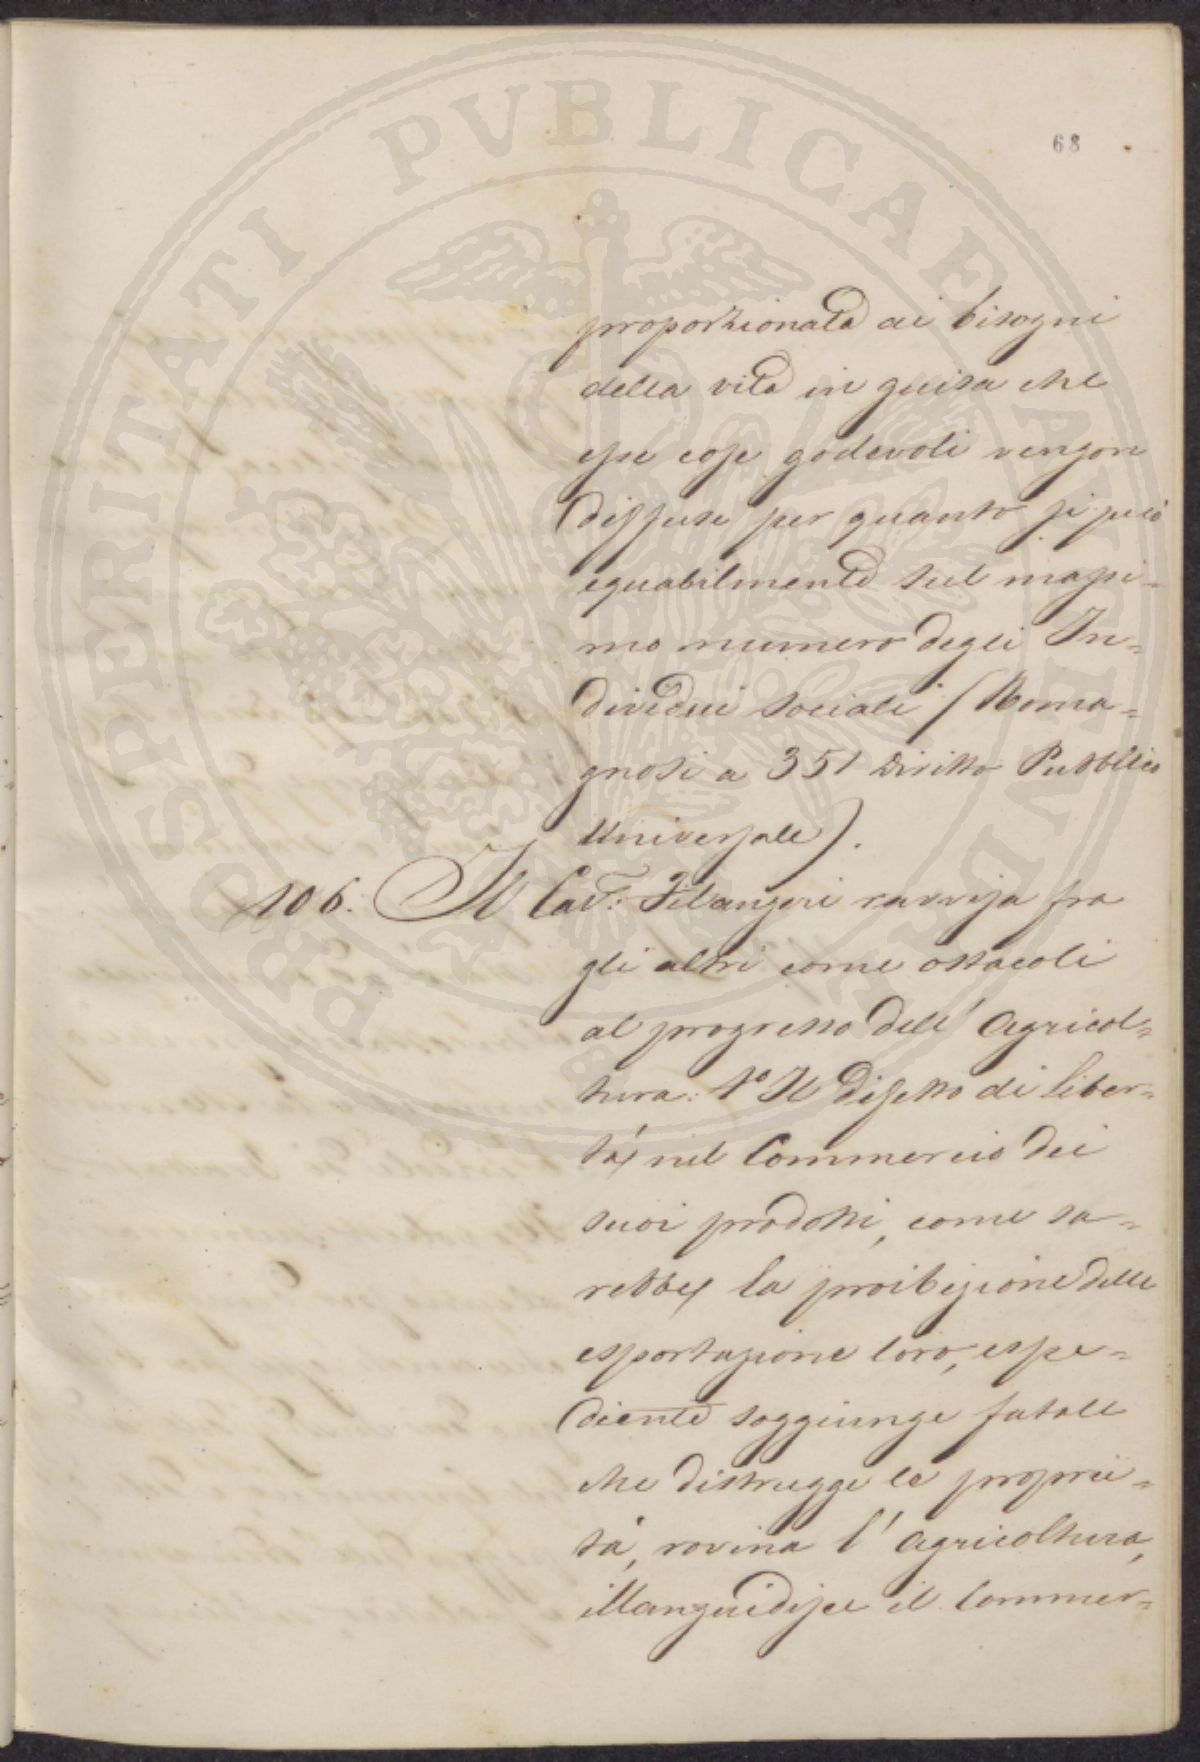 PROSPERITATI PVBLICAE AVGENDAE
68
proporzionata ai bisogni
della vita in guisa che
esse cose godevoli vengon
diffuse per quanto si può
equabilmente sul massi=
mo numero degli In=
dividui sociali (Roma=
gnosi a 351 Diritto Pubblico
Universale).
106. Il Cav: Filangeri ravvisa fra
gli altri come ostacoli
al progresso dell' Agricol=
tura: 1º Il difetto di liber=
tà nel Commercio dei
suoi prodotti, come sa=
rebbe la proibizione delle
esportazione loro, espe=
diente soggiunge fatale
che distrugge le proprie=
tà, rovina l' Agricoltura,
illanguidisce il Commer=